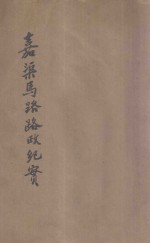 嘉渠馬路路政紀實